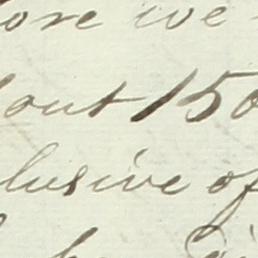 ore we
out 150
lusive of